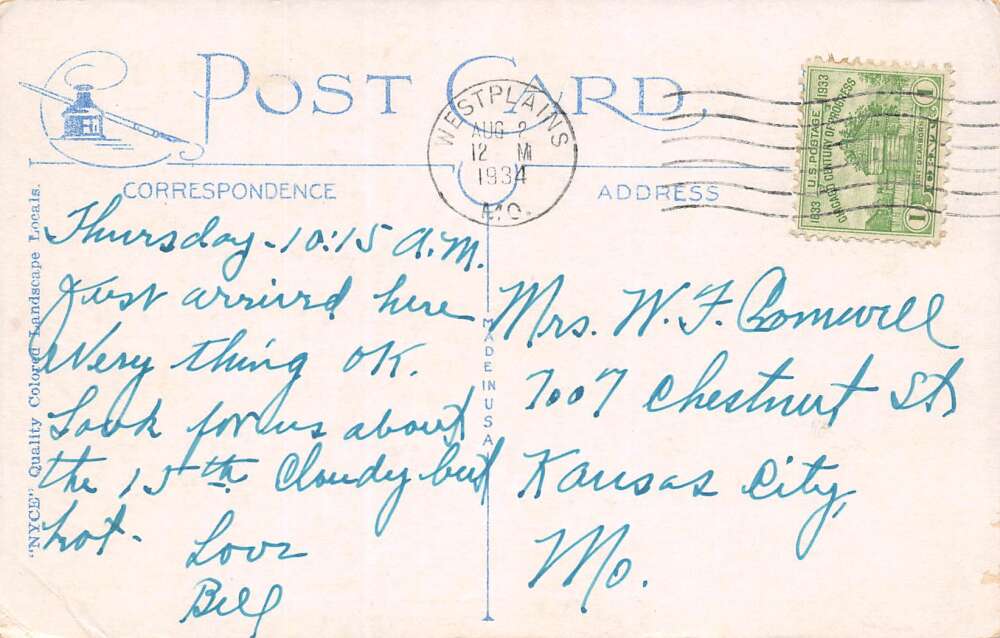 POST CARD
CORRESPONDENCE
ADDRESS
WEST PLAINS
AUG 2
12 M
1934
MO.
1833 U.S. POSTAGE 1933
CHICAGO CENTURY OF PROGRESS
1
1
Thursday - 10:15 A.M.
Just arrived here
Every thing OK.
Look for us about
the 15th Cloudy but
hot.
Love
Bill
Mrs. W. F.
7007 Chestnut St.
Kansas City,
Mo.
MADE IN U.S.A.
"NYCE" Quality Colored Landscape Locals.